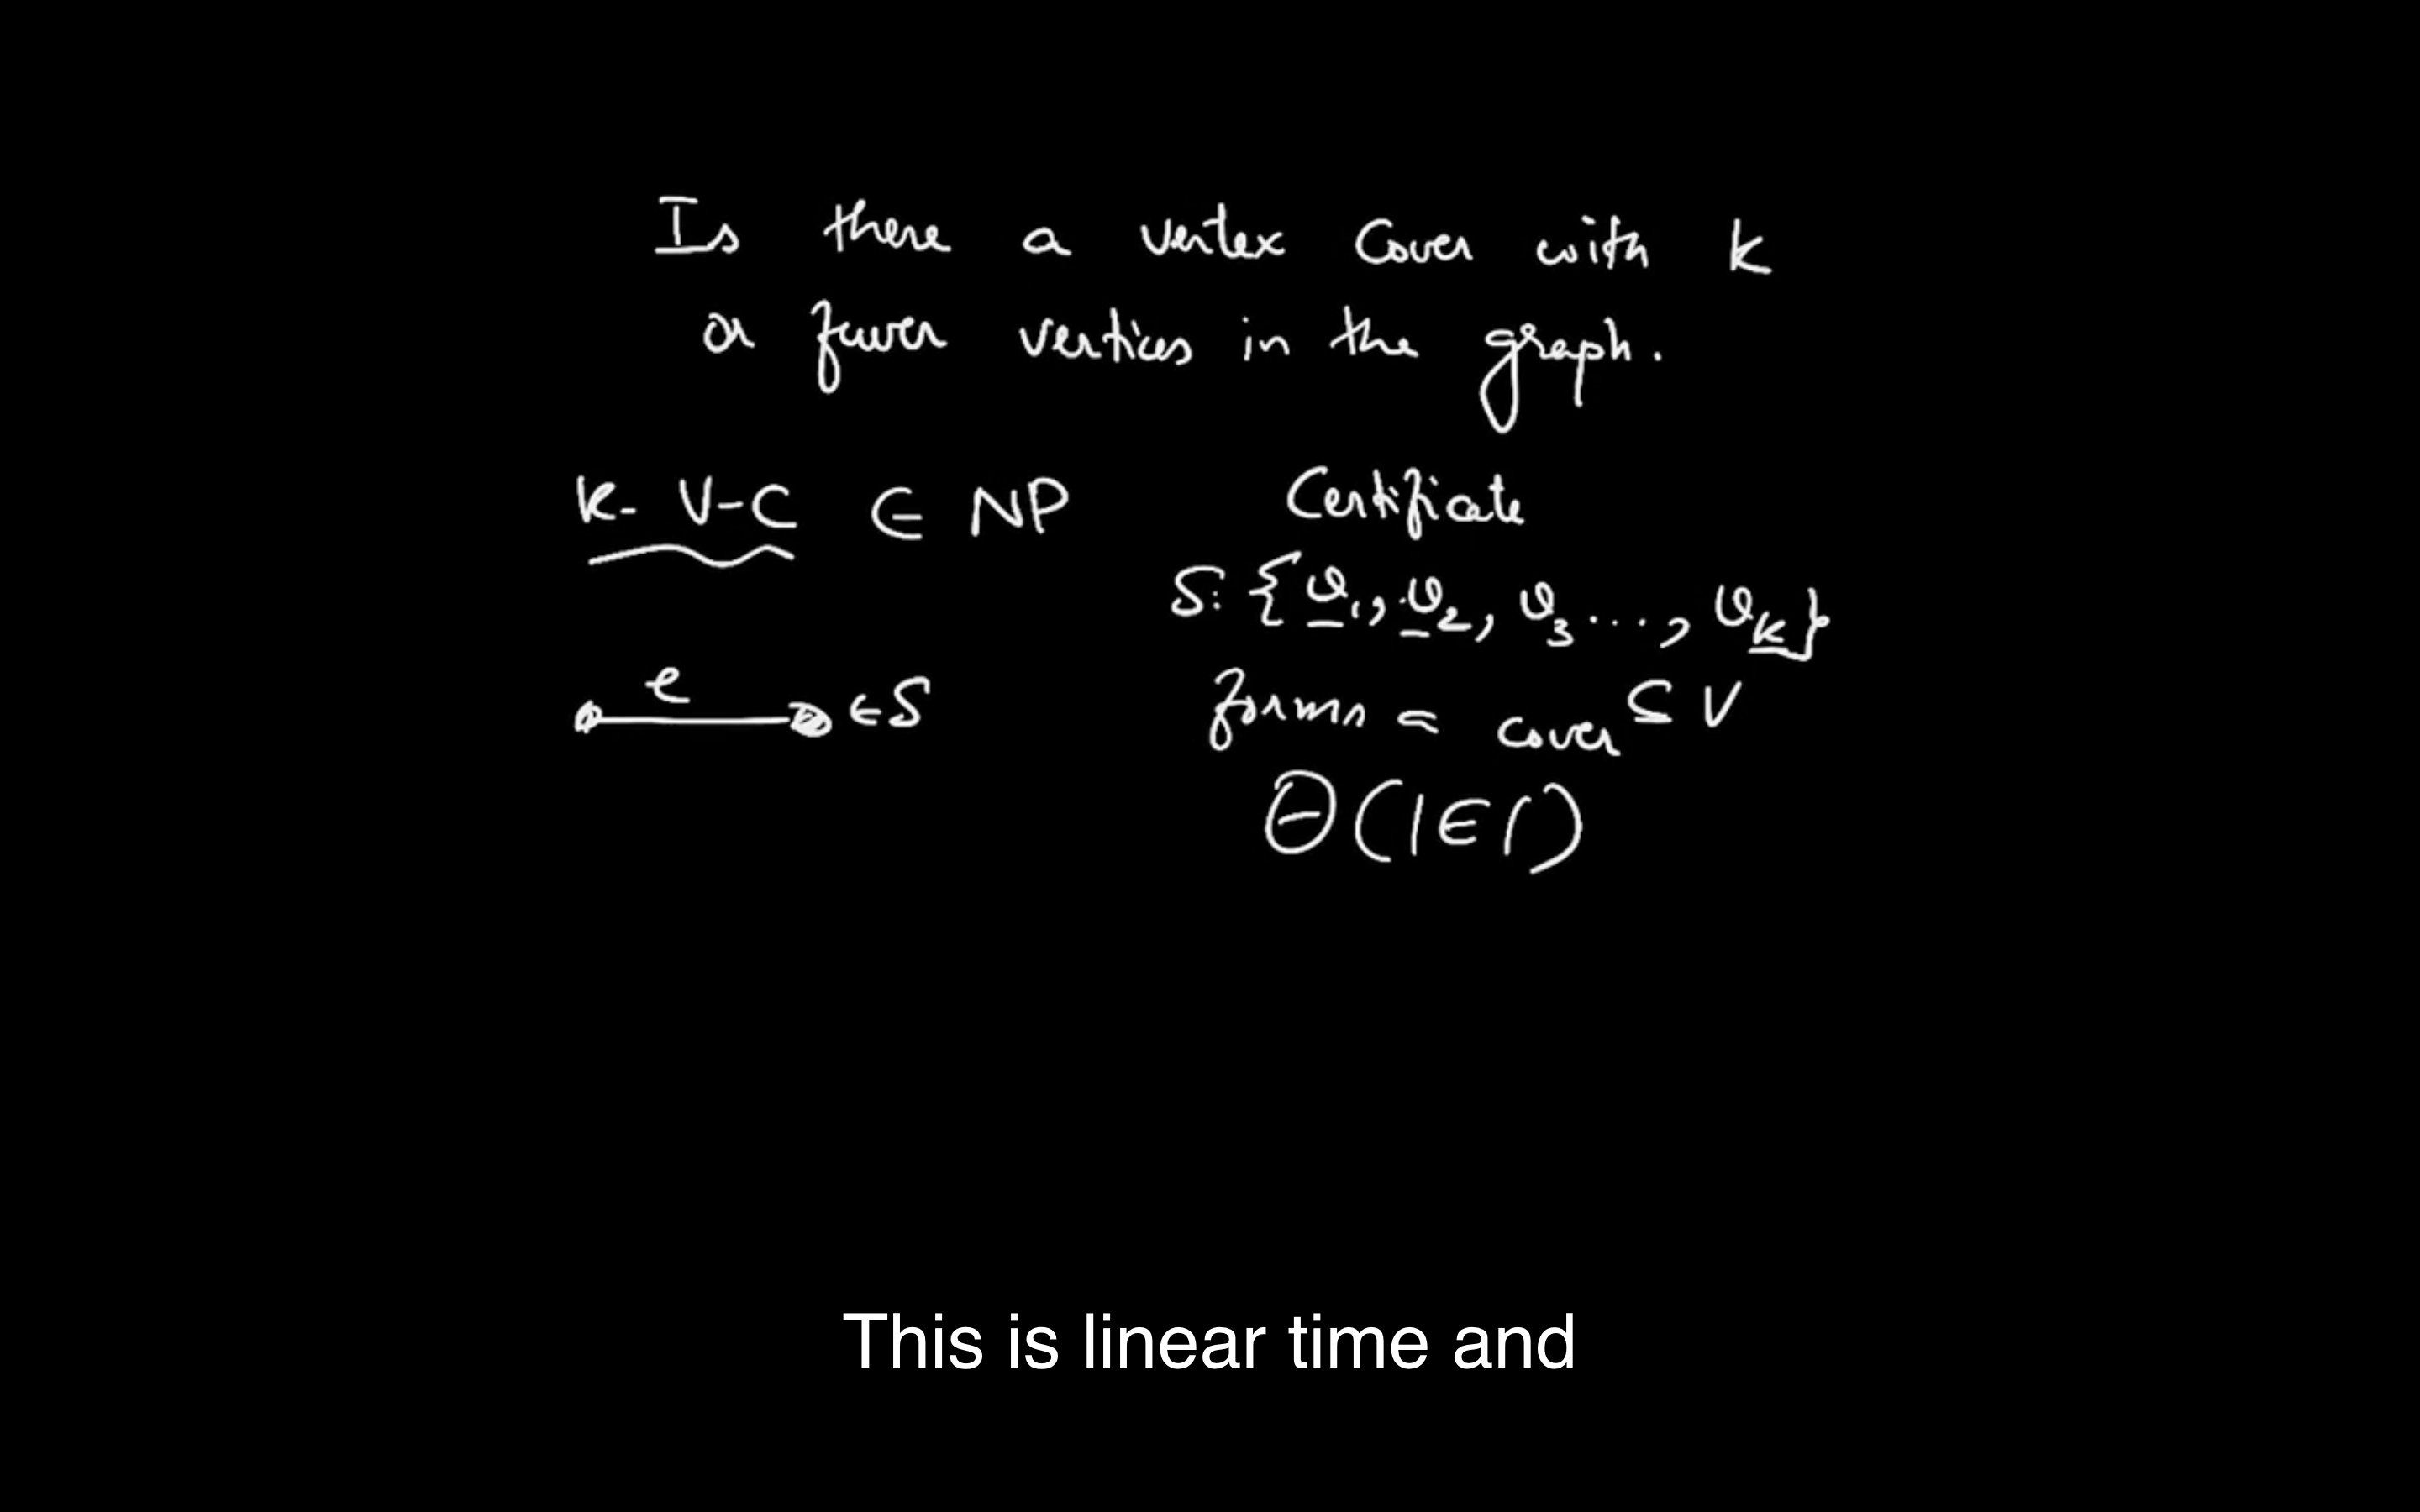 Is there a vertex cover with k
or fewer vertices in the graph.
k- V-C ∈ NP
Certificate
S: {v₁, v₂, v₃ ..., vₖ}
e
∈ S
forms a cover ⊆ V
Θ(|E|)
This is linear time and